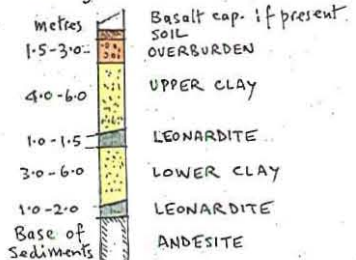 metres
Basalt cap. if present
SOIL
1.5-3.0
OVERBURDEN
4.0-6.0
UPPER CLAY
1.0-1.5
LEONARDITE
3.0-6.0
LOWER CLAY
1.0-2.0
LEONARDITE
Base of
Sediments
ANDESITE